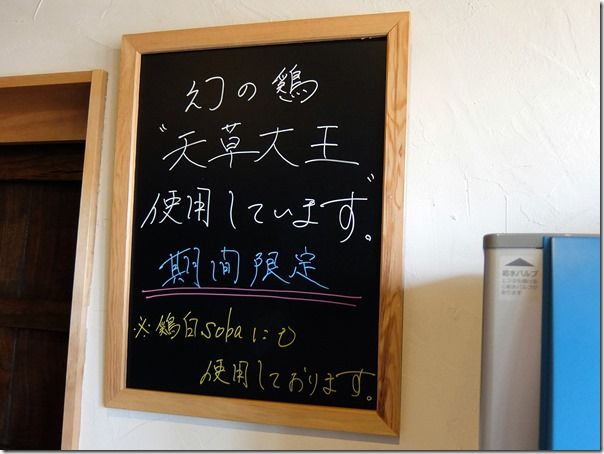 幻の鶏
"天草大王"
使用しています。
期間限定
※鶏白sobaにも
使用しております。
給水バルブ